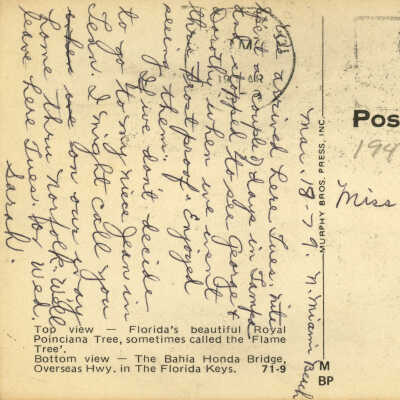 Mar. 18-79. N. Miami Beach
We arrived here Tues. nite.
Spent a couple days in Tampa
and stopped to see George &
Dorothy when we went
thru Frostproof. Enjoyed
seeing them.
If we don't decide
to go to my niece Jean in
Tenn. I might call you
when we on our way
home thru Norfolk. Will
leave here Tues. or Wed.
Sarah.
Top view — Florida's beautiful Royal
Poinciana Tree, sometimes called the 'Flame
Tree'.
Bottom view — The Bahia Honda Bridge,
Overseas Hwy. in The Florida Keys. 71-9
MURPHY BROS. PRESS, INC.
Pos
194
Miss
M
BP